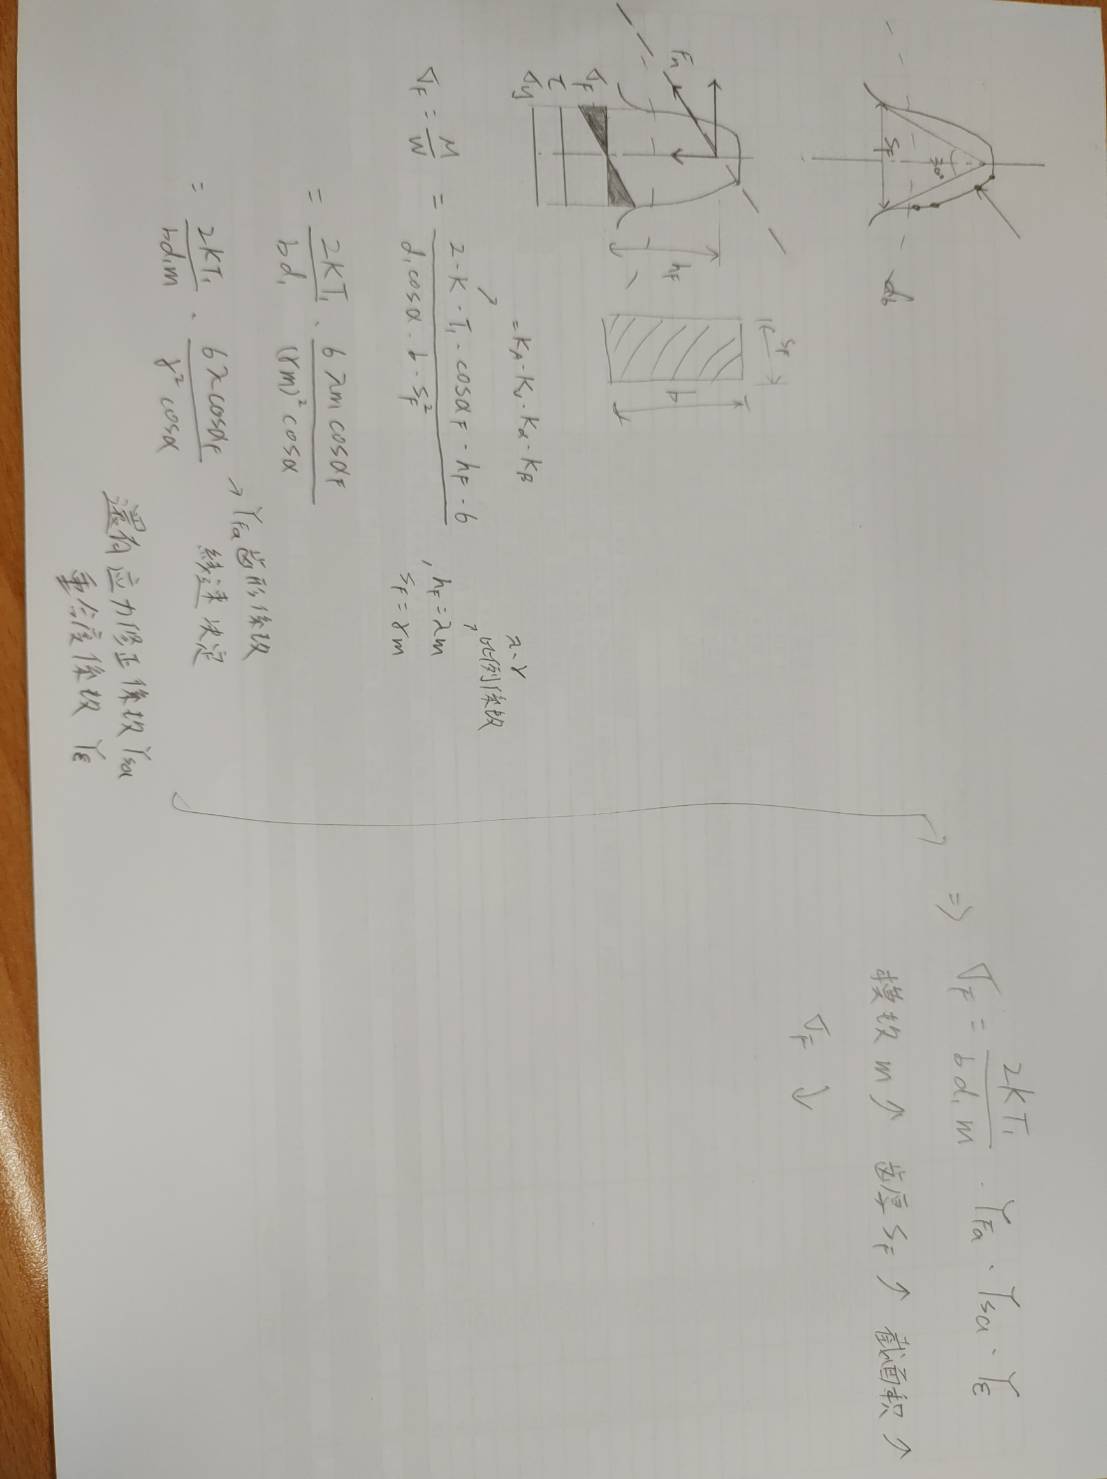 30°
SF
db
Fn
hF
SF
b
σF
τ
σy
= KA · KV · Kα · Kβ
σF = M/W = 2 · K · T1 · cosαF · hF · 6 / d1 cosα · b · SF² , hF = λm
SF = γm
λ、γ
比例係数
= 2KT1 / bd1 · 6 λm cosαF / (γm)² cosα
= 2KT1 / bd1m · 6λ cosαF / γ² cosα
→ YFa 齿形係数
決定
還有应力修正係数 Ysa
重合度係数 Yε
⇒ σF = 2KT1 / bd1m · YFa · Ysa · Yε
模数 m ↗ 齿厚 SF ↗ 截面积 ↗
σF ↓